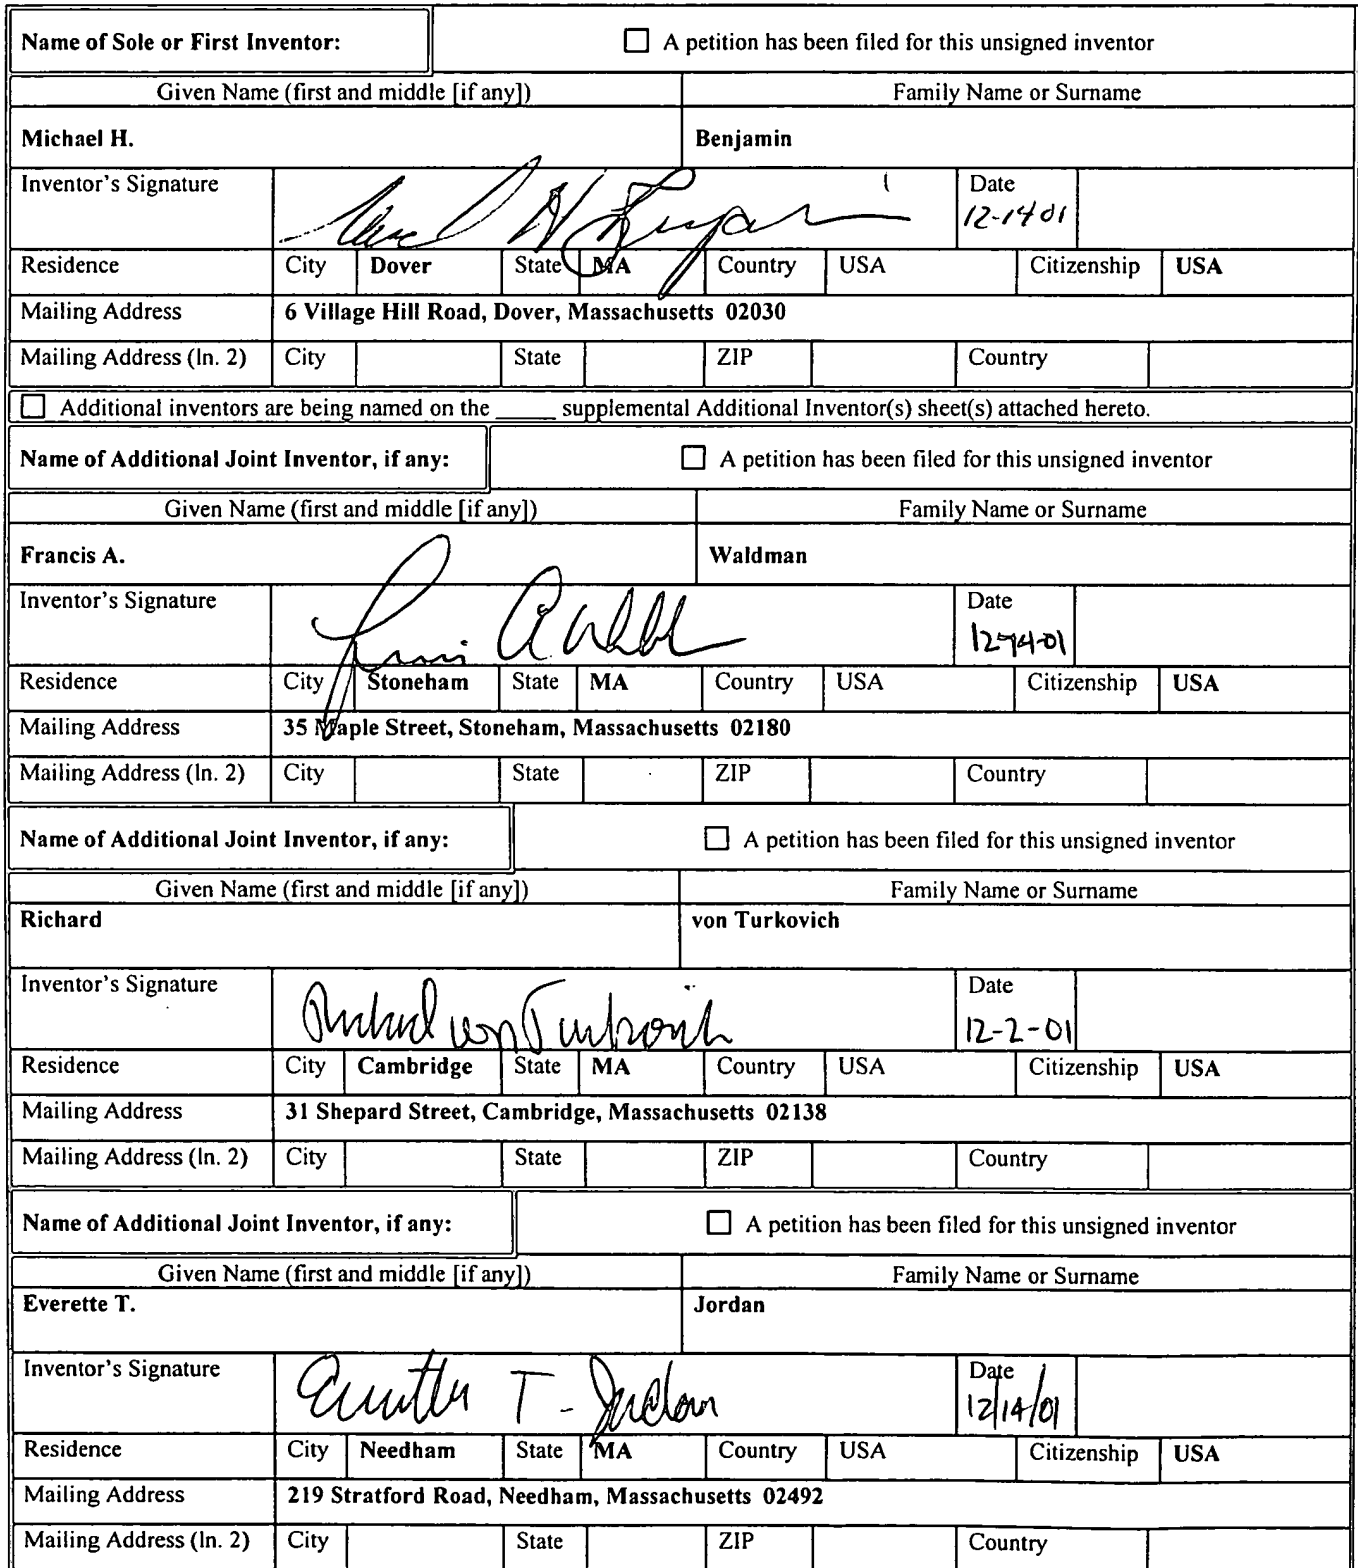 Name of Sole or First Inventor: ☐ A petition has been filed for this unsigned inventor
Given Name (first and middle [if any]) Family Name or Surname
Michael H. Benjamin
Inventor's Signature Date
12-14 01
Residence City Dover State MA Country USA Citizenship USA
Mailing Address 6 Village Hill Road, Dover, Massachusetts 02030
Mailing Address (ln. 2) City State ZIP Country
☐ Additional inventors are being named on the _____ supplemental Additional Inventor(s) sheet(s) attached hereto.
Name of Additional Joint Inventor, if any: ☐ A petition has been filed for this unsigned inventor
Given Name (first and middle [if any]) Family Name or Surname
Francis A. Waldman
Inventor's Signature Date
12-14-01
Residence City Stoneham State MA Country USA Citizenship USA
Mailing Address 35 Maple Street, Stoneham, Massachusetts 02180
Mailing Address (ln. 2) City State ZIP Country
Name of Additional Joint Inventor, if any: ☐ A petition has been filed for this unsigned inventor
Given Name (first and middle [if any]) Family Name or Surname
Richard von Turkovich
Inventor's Signature Richard von Turkovich Date
12-2-01
Residence City Cambridge State MA Country USA Citizenship USA
Mailing Address 31 Shepard Street, Cambridge, Massachusetts 02138
Mailing Address (ln. 2) City State ZIP Country
Name of Additional Joint Inventor, if any: ☐ A petition has been filed for this unsigned inventor
Given Name (first and middle [if any]) Family Name or Surname
Everette T. Jordan
Inventor's Signature Everette T. Jordan Date
12/14/01
Residence City Needham State MA Country USA Citizenship USA
Mailing Address 219 Stratford Road, Needham, Massachusetts 02492
Mailing Address (ln. 2) City State ZIP Country